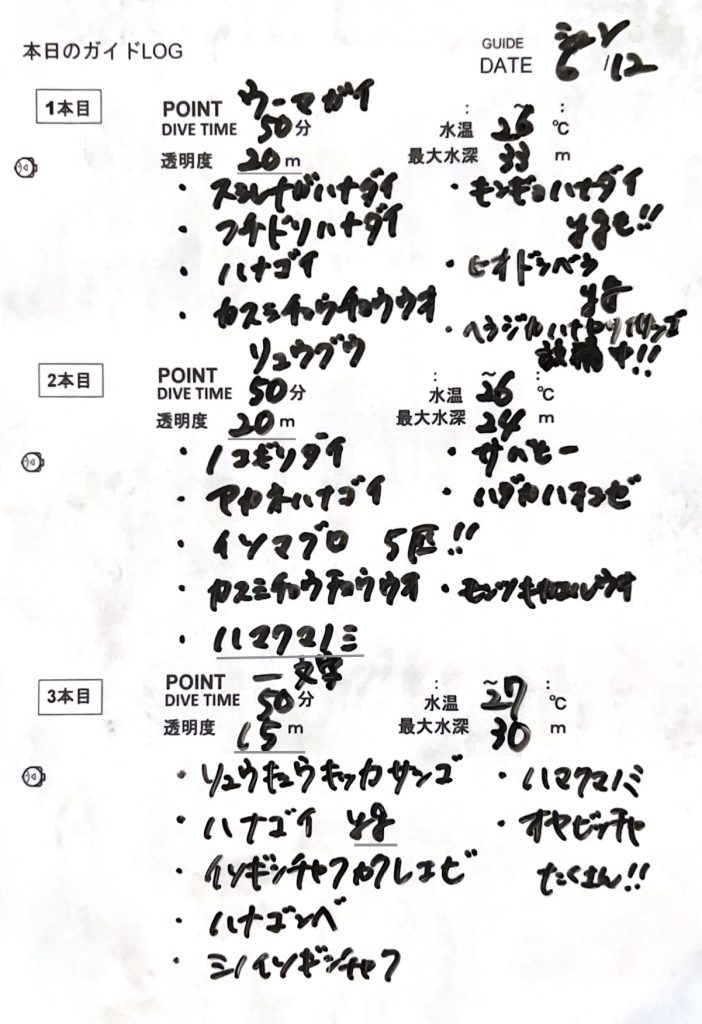 本日のガイドLOG
GUIDE
DATE 6/12
1本目
POINT ウーマガイ
DIVE TIME 50分
: ~ :
水温 26 ℃
透明度 20 m
最大水深 33 m
・スミレナガハナダイ
・モンギョハナダイ
ygも!!
・フチドリハナダイ
・ハナゴイ
・ヒオドシベラ
yg
・カスミチョウチョウウオ
・ヘラジカハナヤサイサンゴ
放精中!!
2本目
POINT リュウグウ
DIVE TIME 50分
: ~ :
水温 26 ℃
透明度 20 m
最大水深 24 m
・ノコギリダイ
・アカネハナゴイ
・ハダカハオコゼ
・イソマグロ 5匹!!
・カスミチョウチョウウオ
・ハマクマノミ
3本目
POINT 一文字
DIVE TIME 50分
: ~ :
水温 27 ℃
透明度 15 m
最大水深 30 m
・リュウキュウキッカサンゴ
・ハマクマノミ
・ハナゴイ yg
・オヤビッチャ
たくさん!!
・イソギンチャクカクレエビ
・ハナゴンベ
・ミノイソギンチャク